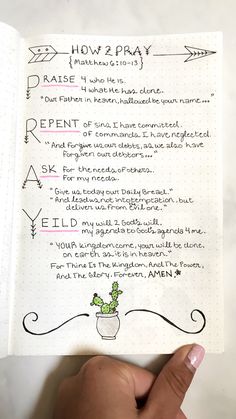 HOW 2 PRAY
{Matthew 6:10-13}
PRAISE 4 who He is.
4 what He has done.
"Our Father in heaven, hallowed be your name..."
REPENT of sins I have committed.
of commands I have neglected.
"And forgive us our debts, as we also have
forgiven our debtors..."
ASK for the needs of others.
For my needs.
"Give us today our Daily Bread."
"And lead us not into temptation.. but
deliver us from evil one."
YEILD my will 2 God's will.
my agenda to God's agenda 4 me.
"YOUR kingdom come, your will be done,
on earth as it is in heaven."
For Thine Is The Kingdom, And The Power,
And The Glory. Forever, AMEN.